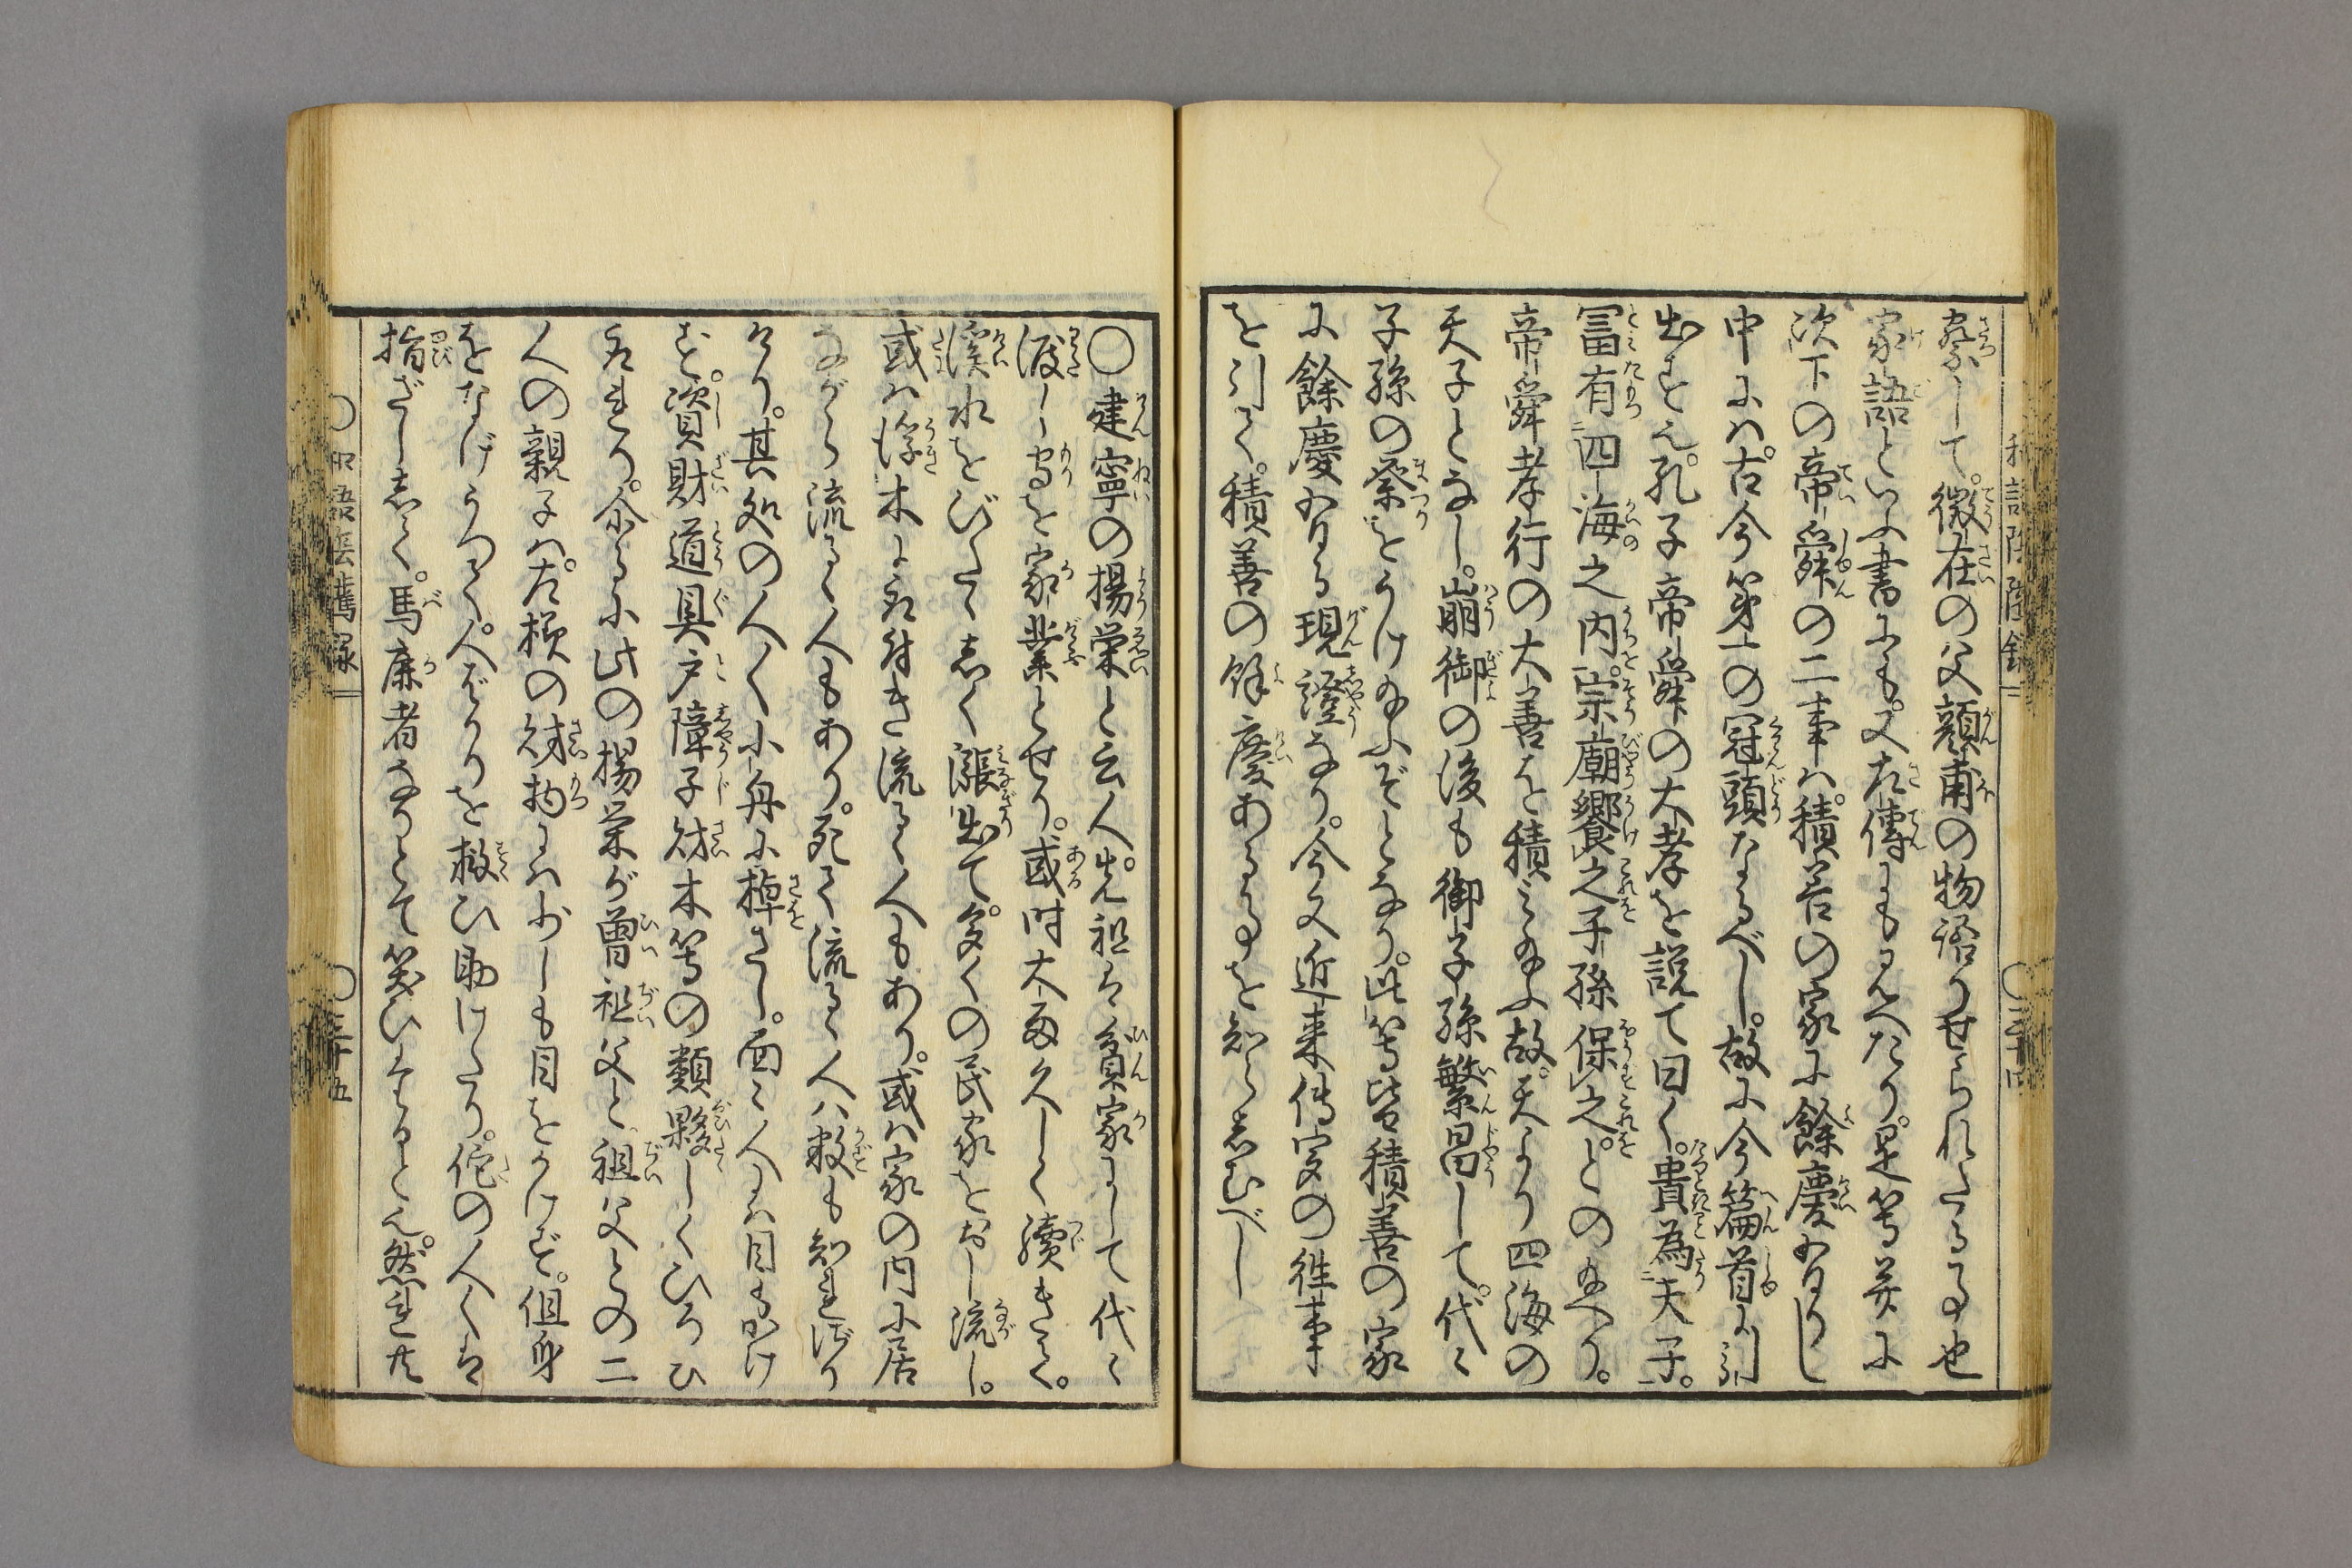 察して。徴在の父顔甫の物語りせられたる事也
家語といふ書にも。又左傳にも見へたり。是等并に
次下の帝舜の二事ハ。積善の家に餘慶ありし
中にハ。古今第一の冠頭なるべし。故に今篇首に引
出すと也。孔子帝舜の大孝を説て曰く。貴為天子。
冨有四海之内。宗廟饗之子孫保之。とのたまへり。
帝舜孝行の大善を積み給ふ故。天より四海の
天子となし。崩御の後も御子孫繁昌して。代〻
子孫の祭をうけ給ふぞとなり。此等皆積善の家
に餘慶ある現證なり。今又近来傳実の徃事
を引て。積善の餘慶ある事を知らしむべし
和語陰隲録 〇三十四
〇建寧の揚榮と云人。先祖ハ貧家にして代〻
渡し守を家業とせり。或時大雨久しく續きて。
溪水をびたゝしく漲出て。多くの民家をおし流し。
或ハ浮木に取付き流るゝ人もあり。或ハ家の内に居
ながら流るゝ人もあり。死て流るゝ人ハ数も知れざり
けり。其処の人〻小舟に棹さし。面〻人にハ目もかけ
ず。資財道具戸障子財木等の類夥しくひろひ
取れり。余るに此の揚榮が曽祖父と。祖父との二
人の親子ハ。左様の財物にハ少しも目をかけず。但身
をなげうつて。人ばかりを救ひ助けたり。佗の人〻ハ
指ざしして。馬鹿者なりとて笑ひそしると也。然れ共
〇和語陰隲録 〇三十五